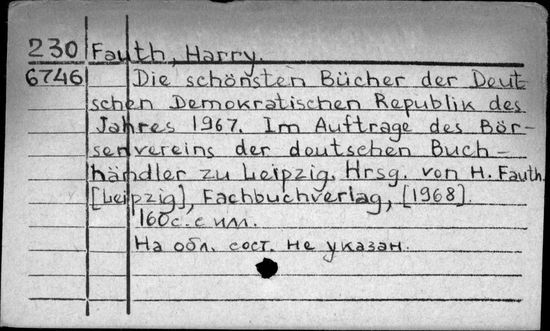 230 Fauth, Harry.
6746 Die schönsten Bücher der Deut-
schen Demokratischen Republik des
Jahres 1967. Im Auftrage des Bör-
senvereins der deutschen Buch-
händler zu Leipzig. Hrsg. von H. Fauth.
[Leipzig], Fachbuchverlag, [1968].
160 с. с илл.
На обл. сост. не указан.